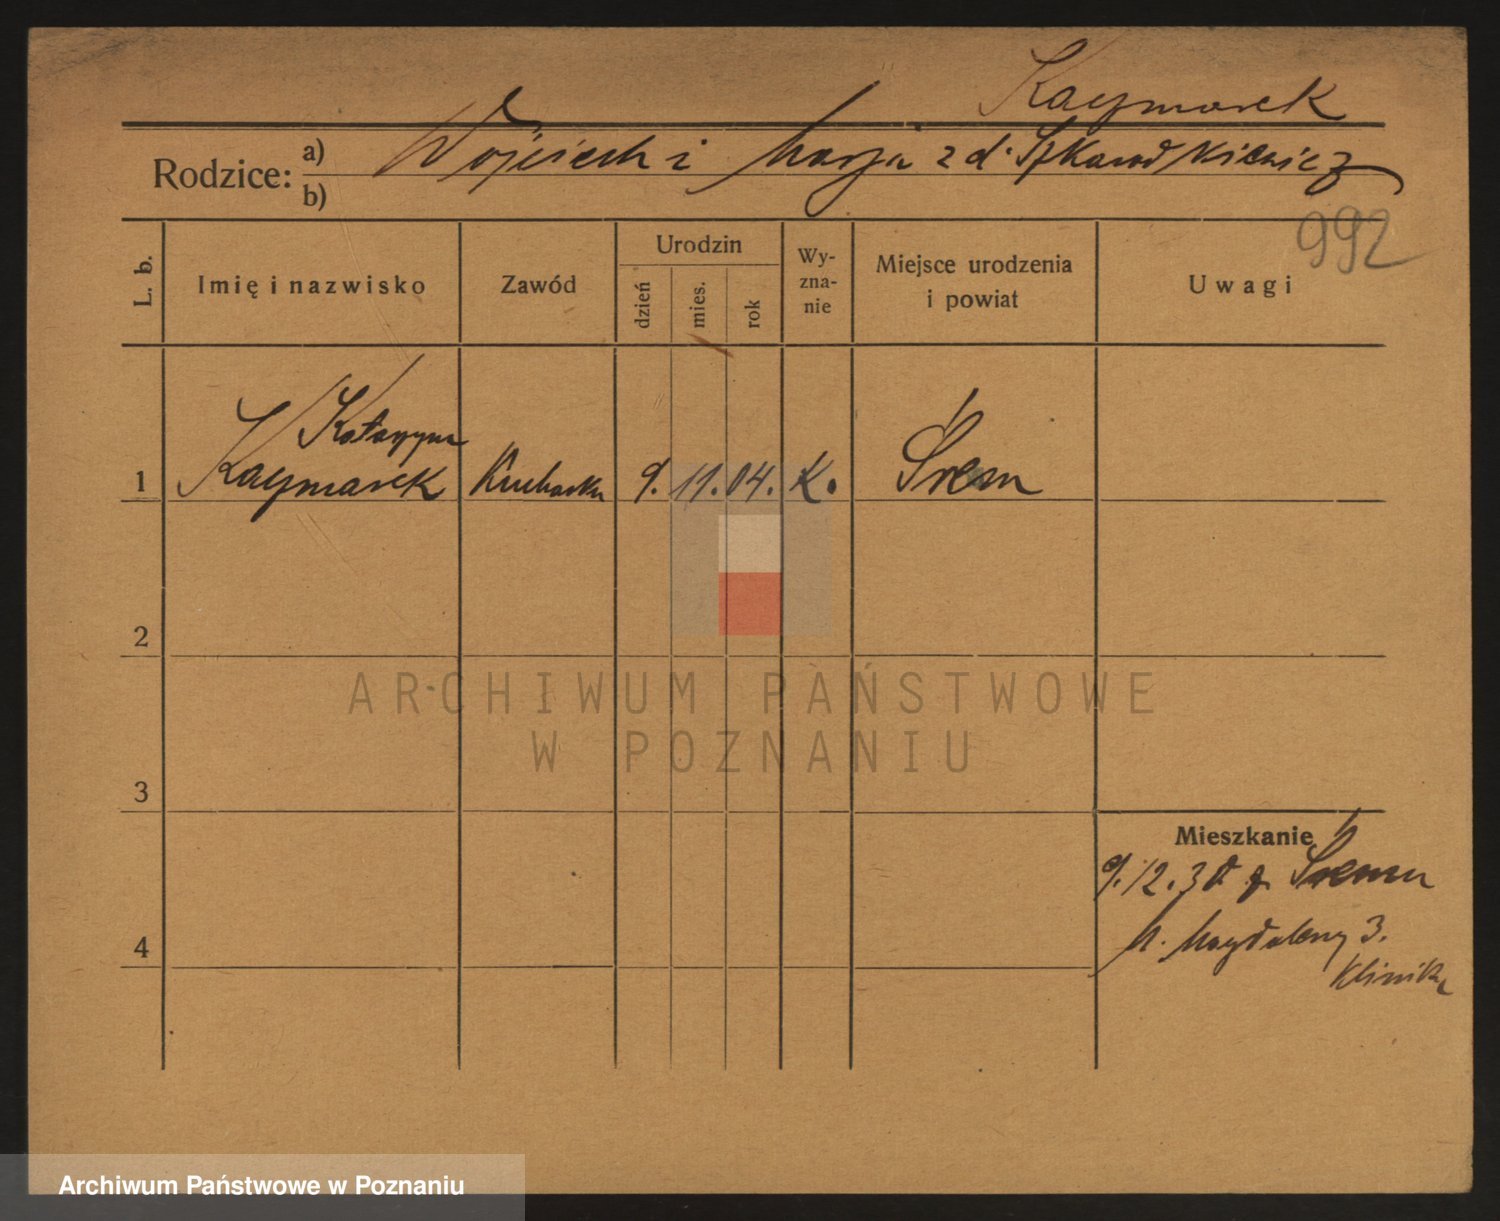 Kaczmarek
Rodzice: a) Wojciech i Marja z d. Szkaradkiewicz
b)
992
L. b. Imię i nazwisko Zawód Urodzin dzień mies. rok Wyznanie Miejsce urodzenia i powiat Uwagi
Katarzyna
1 Kaczmarek Kucharka 9. 11. 04. K. Śrem
2
ARCHIWUM PAŃSTWOWE
W POZNANIU
3
Mieszkanie
9.12.30 z Śremu
4 M. Magdaleny 3.
Klinika
Archiwum Państwowe w Poznaniu